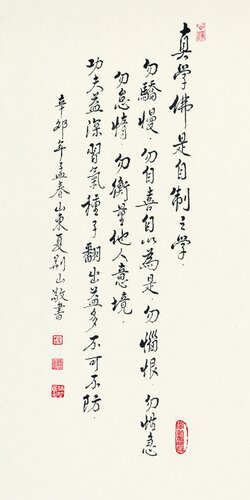 真學佛是自制之學．
勿驕慢．勿自喜自以為是．勿惱恨．勿性急
勿怠惰．勿衡量他人意境．
功夫益深習氣種子翻出益多不可不防．
辛卯年孟春山東夏荆山敬書